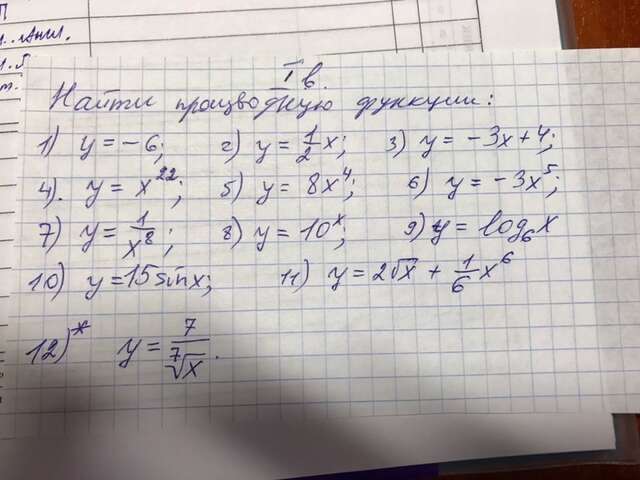 П
1..Англ.
I в.
Найти производную функции:
1) y = -6; 2) y = 1/2 x; 3) y = -3x+4;
4). y = x^22; 5) y = 8x^4; 6) y = -3x^5;
7) y = 1/x^8; 8) y = 10^x; 9) y = log₆x
10) y = 15 sin x; 11) y = 2√x + 1/6 x^6
12)* y = 7/⁷√x.